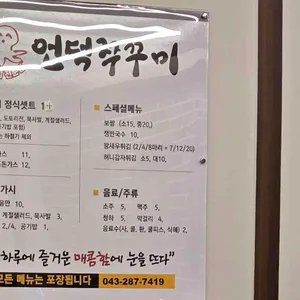 언덕쭈꾸미
정식셋트 1인
도토리전, 묵사발, 계절샐러드,
공기밥 포함)
는 좌랄기 제외
가스 11,
돈가스 12,
가시
음면 10,
계절샐러드, 묵사발 3,
2,/4, 공기밥 1,
■ 스페셜메뉴
보쌈 (소15, 중20,)
쟁반국수 10,
왕새우튀김 (2/4/8마리 = 7/12/20)
허니감자튀김 소5, 대10,
■ 음료/주류
소주 5, 맥주 5,
청하 5, 막걸리 4,
음료수(사, 콜, 환, 쿨피스, 식혜) 2,
하루에 즐거운 매콤함에 눈을 뜨다"
모든 메뉴는 포장됩니다 043-287-7419